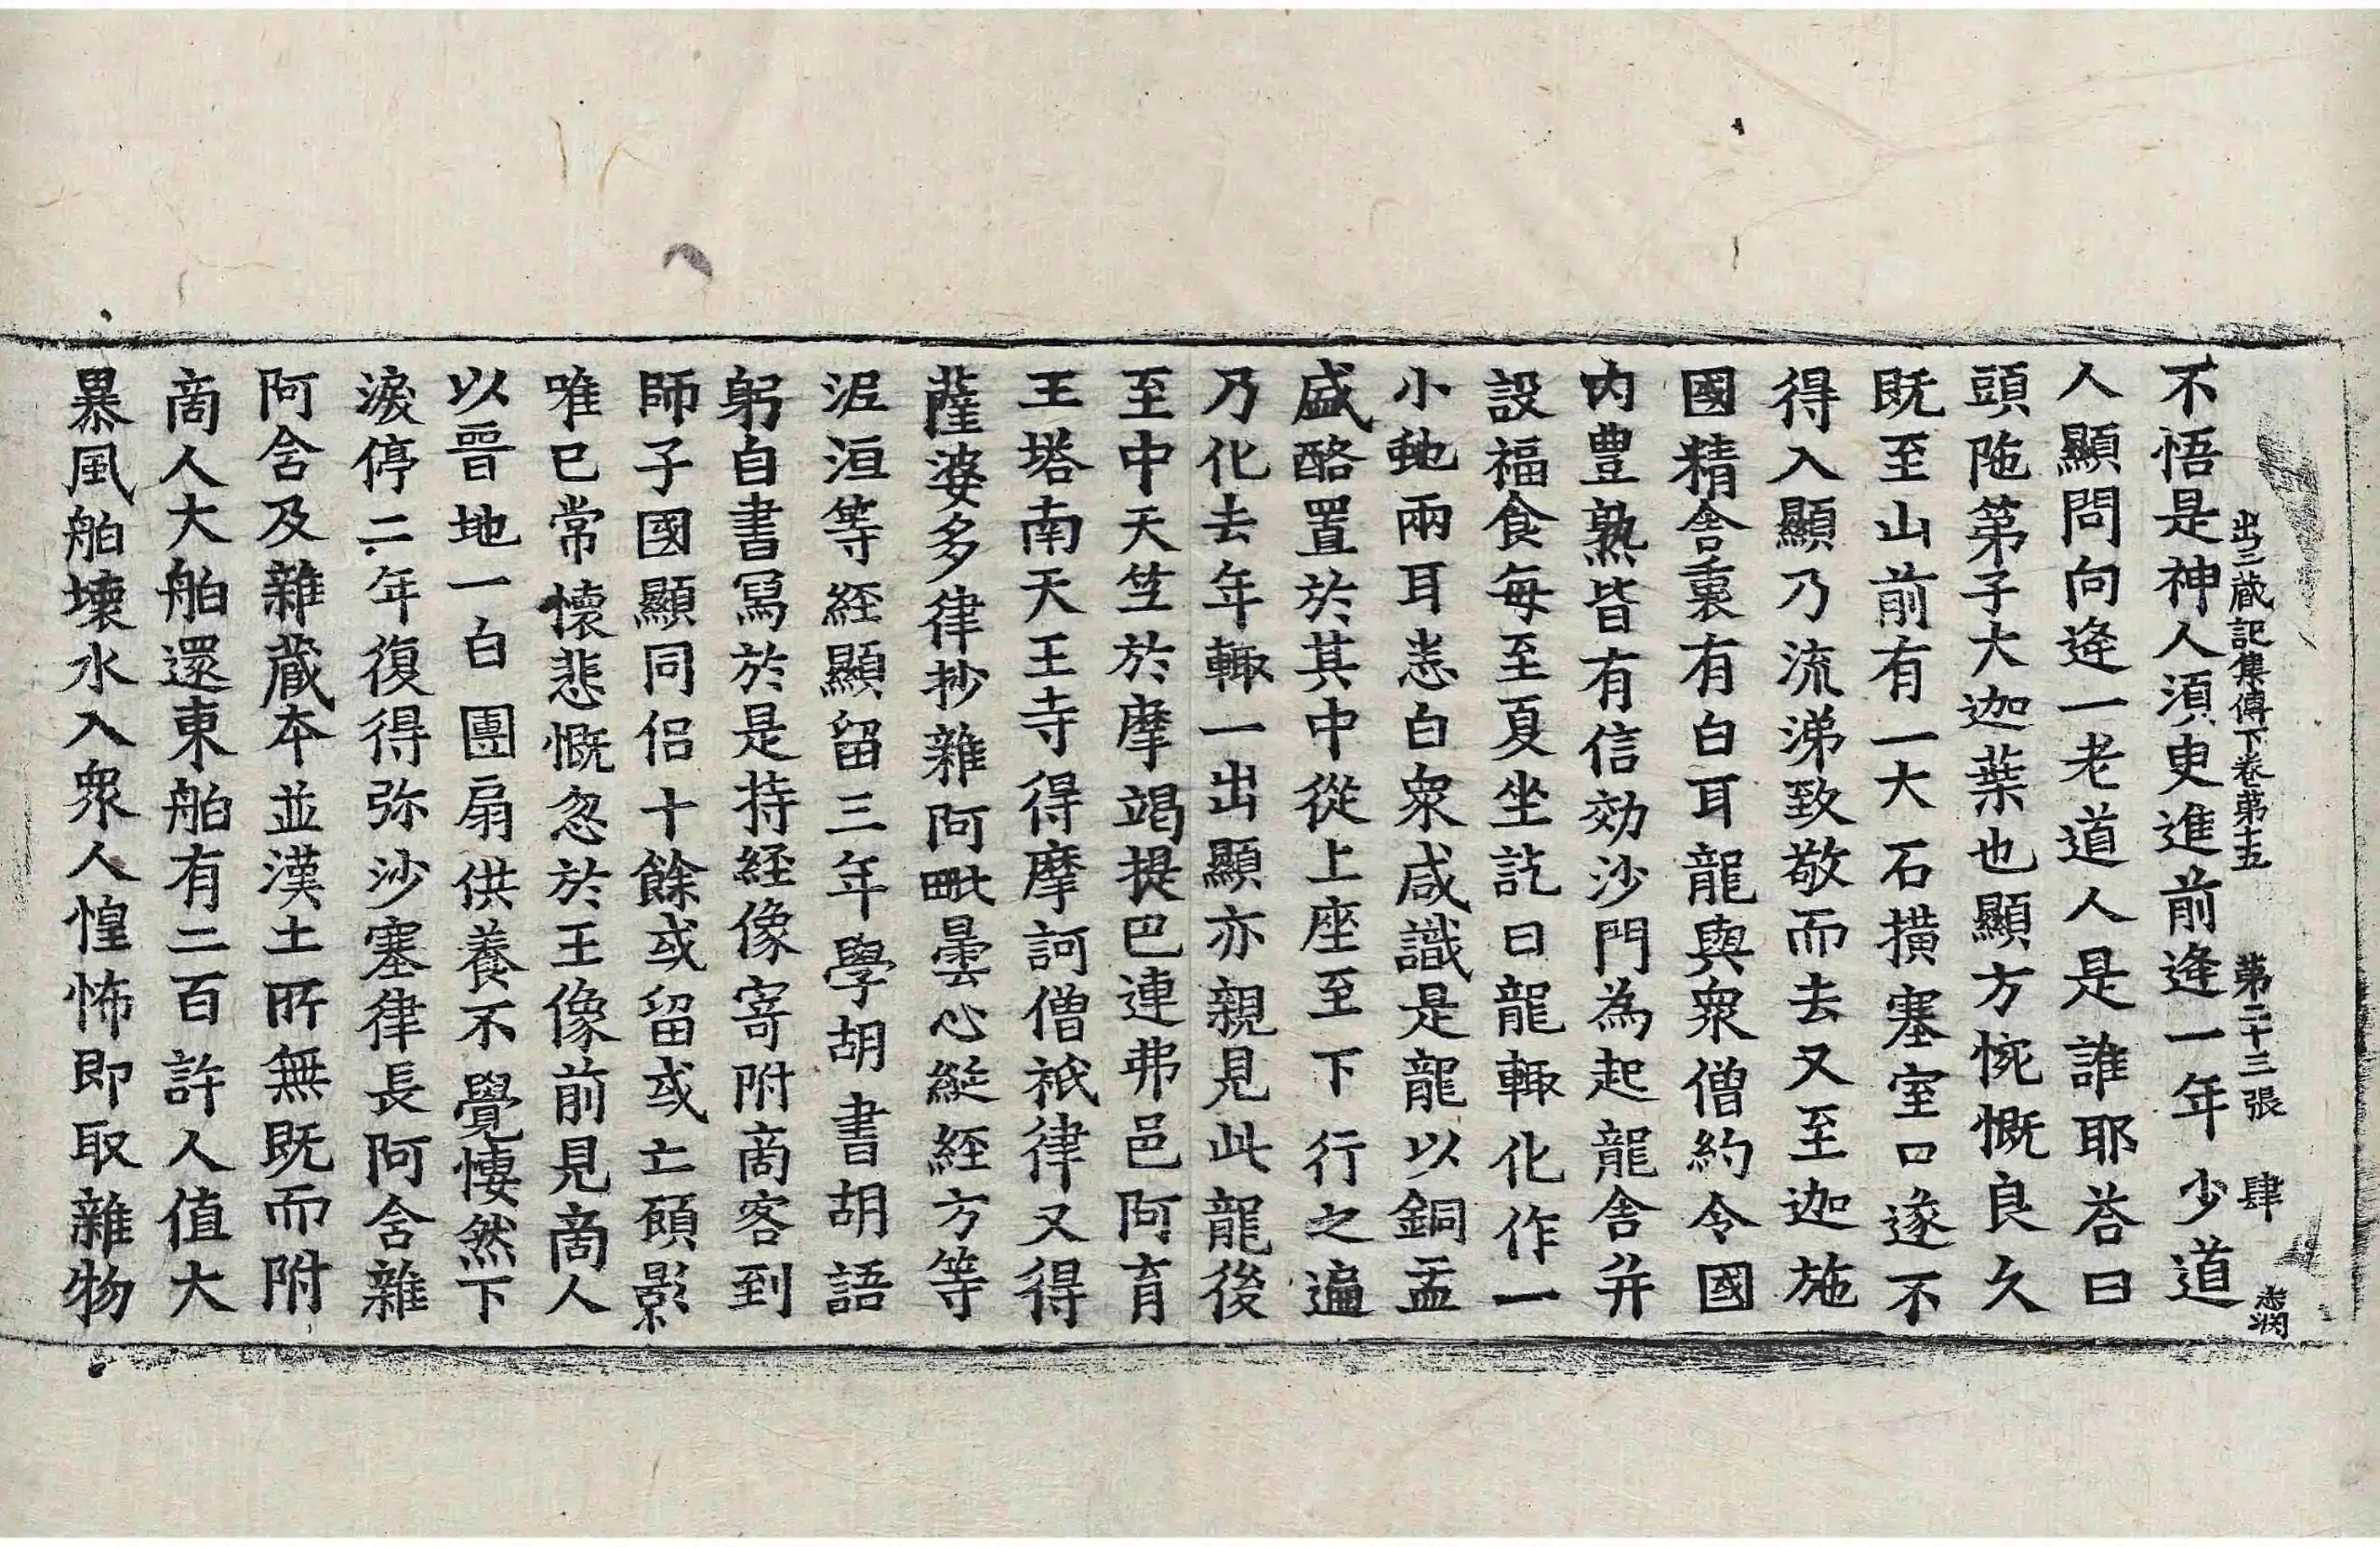 出三藏記集傳下卷第十五　第二十三張　肆
不悟是神人須臾進前逢一年少道
人顯問向逢一老道人是誰耶荅曰
頭陁第子大迦葉也顯方惋慨良久
既至山前有一大石橫塞室口遂不
得入顯乃流涕致敬而去又至迦施
國精舍裏有白耳龍與衆僧約令國
內豊熟皆有信効沙門為起龍舍并
設福食每至夏坐訖日龍輙化作一
小虵兩耳悉白衆咸識是龍以銅盂
盛酪置於其中從上座至下行之遍
乃化去年輙一出顯亦親見此龍後
至中天竺於摩竭提巴連弗邑阿育
王塔南天王寺得摩訶僧祇律又得
薩婆多律抄雜阿毗曇心綖経方等
泥洹等経顯留三年學胡書胡語
躬自書寫於是持経像寄附商客到
師子國顯同侶十餘或留或亡顧影
唯已常懷悲慨忽於王像前見商人
以晉地一白團扇供養不覺悽然下
淚停二年復得弥沙塞律長阿含雜
阿含及雜藏本並漢土所無既而附
商人大舶還東舶有二百許人值大
暴風舶壞水入衆人惶怖即取雜物